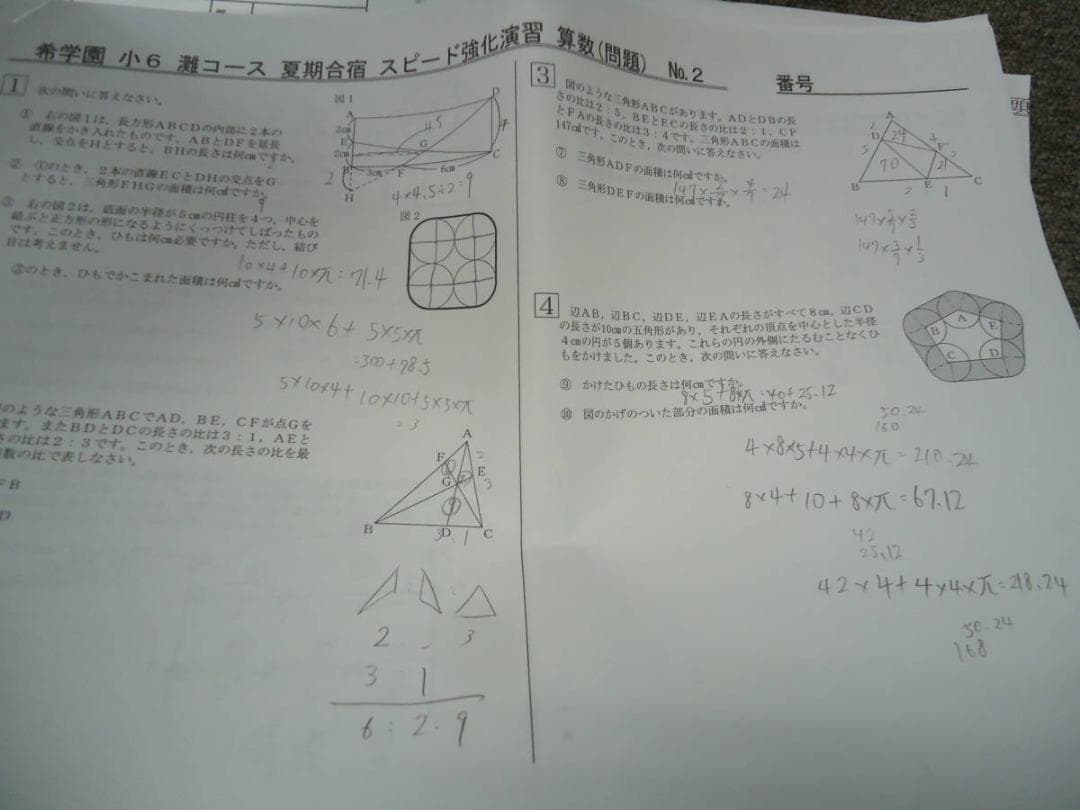 希学園 小6 灘コース 夏期合宿 スピード強化演習 算数(問題) No.2
番号
1 次の問いに答えなさい。
① 右の図1は、長方形ABCDの内部に2本の
直線をかき入れたものです。ABとDFを延長
し、交点をHとすると、BHの長さは何cmですか。
② ①のとき、2本の直線ECとDHの交点をG
とすると、三角形EHGの面積は何cm²ですか。
9
③ 右の図2は、底面の半径が5cmの円柱を4つ、中心を
結ぶと正方形の形になるようにくっつけてしばったもの
です。このとき、ひもは何cm必要ですか。ただし、結び
目は考えません。
10×4+10×π=71.4
③のとき、ひもでかこまれた面積は何cm²ですか。
5×10×6+5×5×π
=300+78.5
5×10×4+10×10+5×5×π
図1
A
D
2cm
45
E
2cm
G
C
B
3cm
F
6cm
2
H
4×4.5÷2=9
図2
のような三角形ABCでAD、BE、CFが点Gを
ます。またBDとDCの長さの比は3:1、AEと
さの比は2:3です。このとき、次の長さの比を最
数の比で表しなさい。
A
F
2
E
G
3
B
D
C
3 : 1
2 : 3
3 : 1
6 : 2 : 9
3 図のような三角形ABCがあります。ADとDBの長
さの比は2:5、BEとECの長さの比は2:1、CF
とFAの長さの比は3:4です。三角形ABCの面積は
147cm²です。このとき、次の問いに答えなさい。
⑦ 三角形ADFの面積は何cm²ですか。
147×2/7×4/7=24
⑧ 三角形DEFの面積は何cm²ですか。
A
2
D
24
4
F
5
70
21
B
2
E
1
C
147×5/7×2/3
147×3/7×1/3
4 辺AB、辺BC、辺DE、辺EAの長さがすべて8cm、辺CD
の長さが10cmの五角形があり、それぞれの頂点を中心とした半径
4cmの円が5個あります。これらの円の外側にたるむことなくひ
もをかけました。このとき、次の問いに答えなさい。
A
B
E
C
D
⑨ かけたひもの長さは何cmですか。
8×5+8×π=40+25.12
⑩ 図のかげのついた部分の面積は何cm²ですか。
50.24
160
4×8×5+4×4×π=210.24
8×4+10+8×π=67.12
42
25.12
42×4+4×4×π=218.24
50.24
168